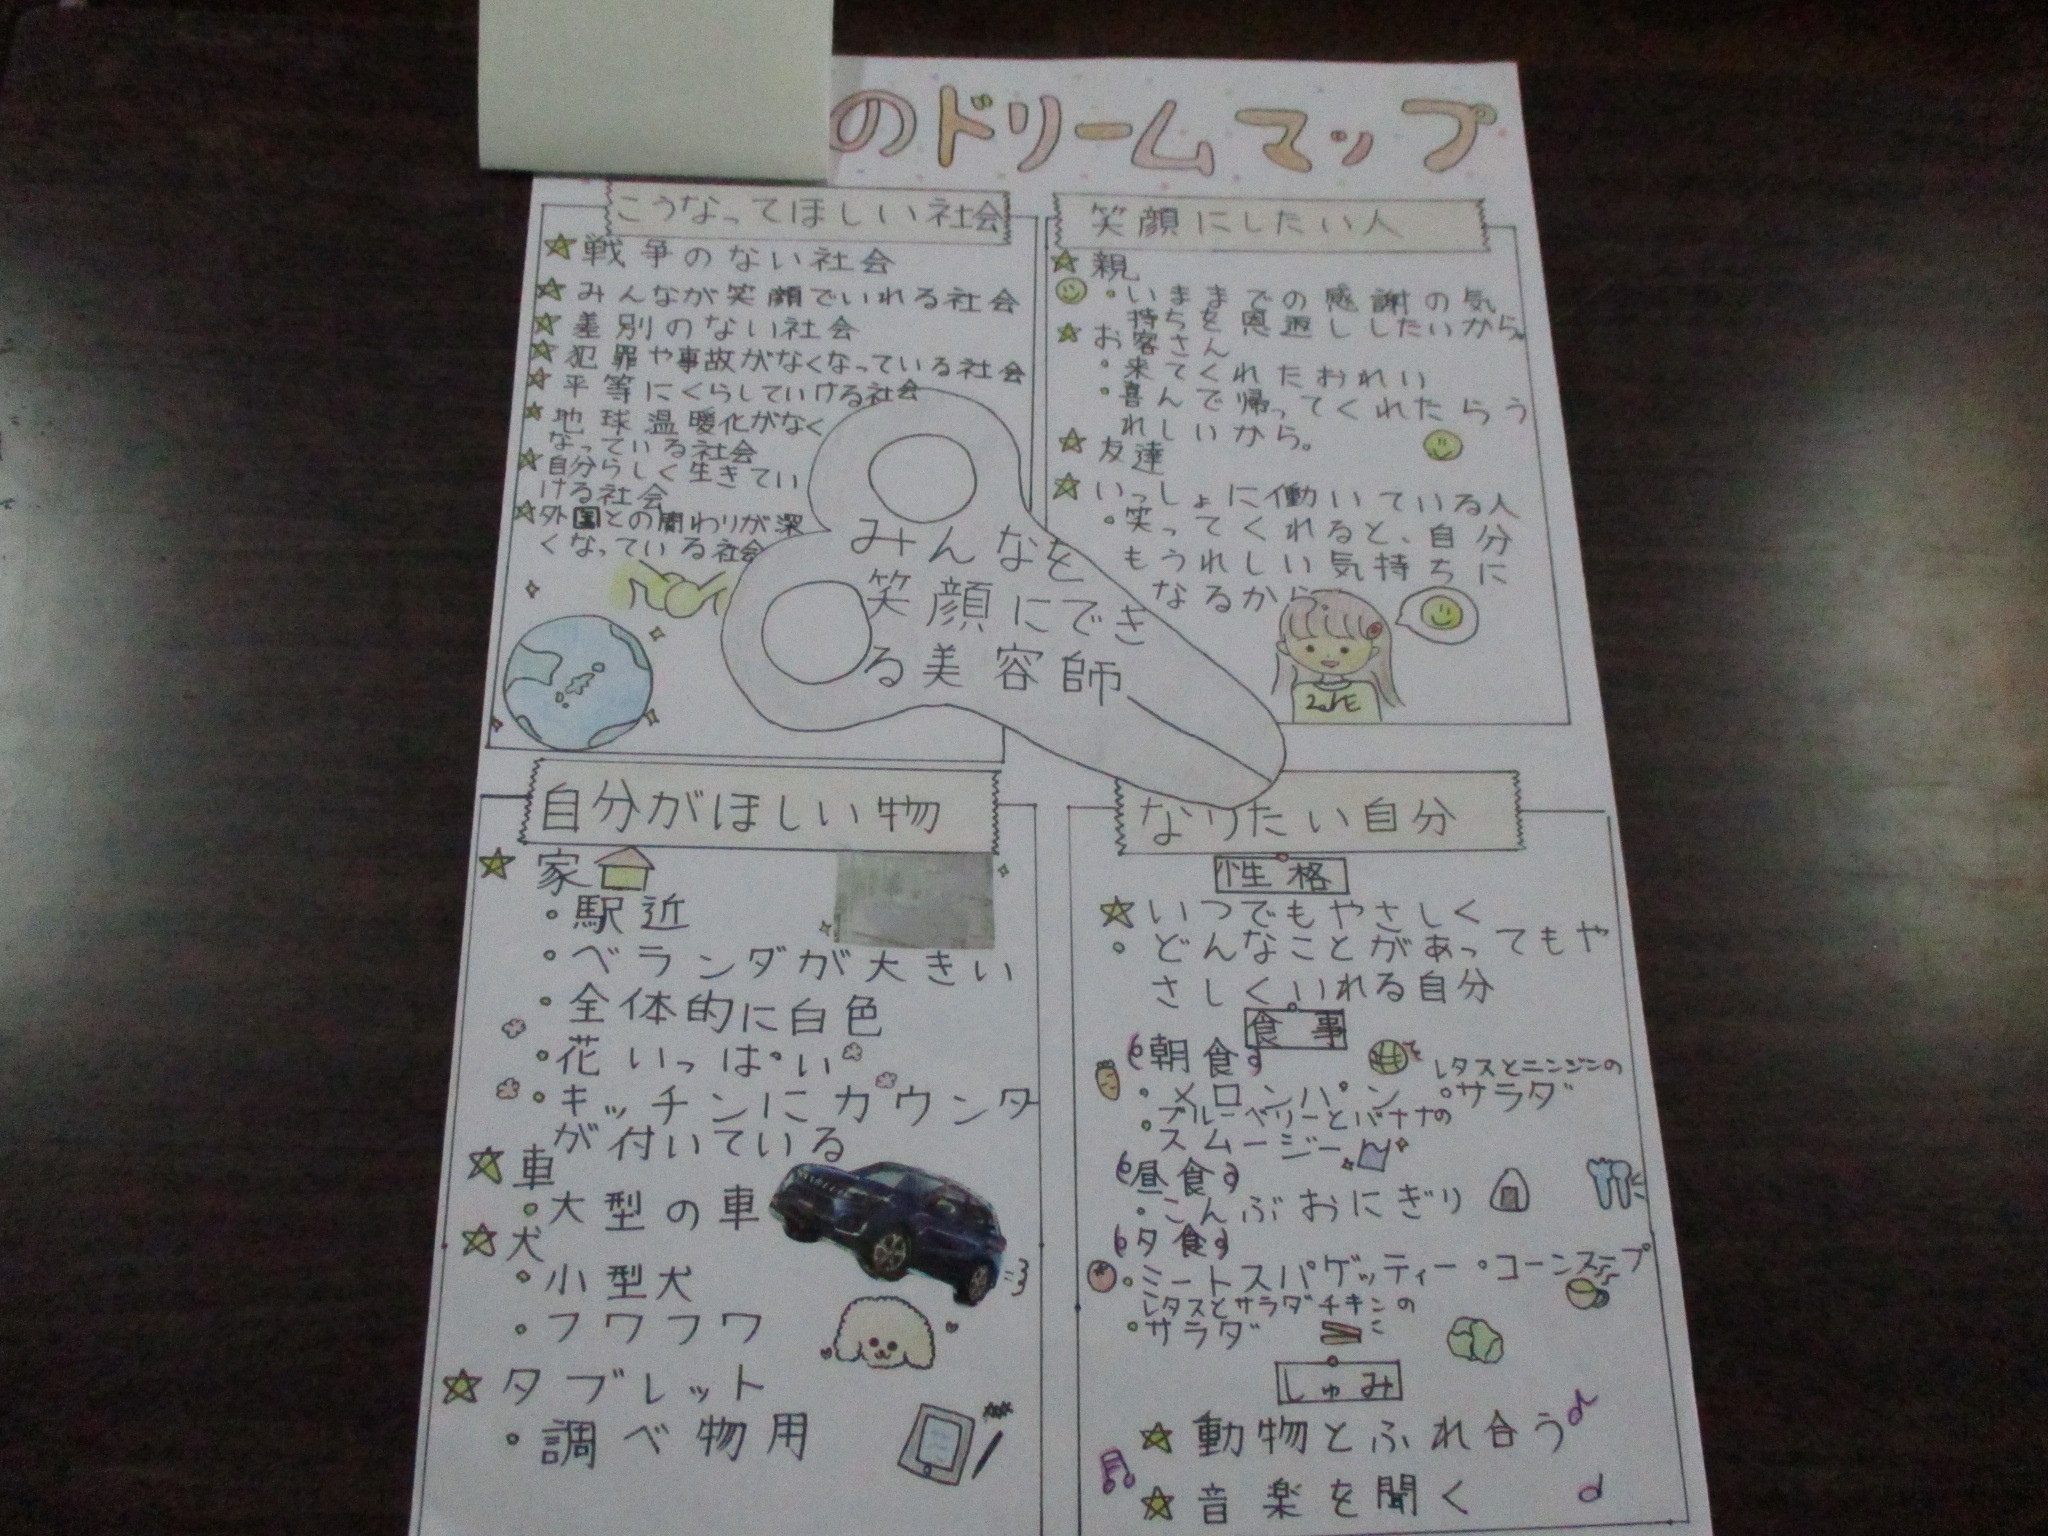 のドリームマップ
こうなってほしい社会
戦争のない社会
みんなが笑顔でいれる社会
差別のない社会
犯罪や事故がなくなっている社会
平等にくらしていける社会
地球温暖化がなく
なっている社会
自分らしく生きてい
ける社会
外国との関わりが深
くなっている社会
笑顔にしたい人
親
・いままでの感謝の気
持ちを恩返ししたいから。
お客さん
・来てくれたおれい
・喜んで帰ってくれたらう
れしいから。
友達
いっしょに働いている人
・笑ってくれると、自分
もうれしい気持ちに
なるから。
みんなを
笑顔にでき
る美容師
自分がほしい物
家
・駅近
・ベランダが大きい
・全体的に白色
・花いっぱい
・キッチンにカウンター
が付いている
車
・大型の車
犬
・小型犬
・フワフワ
タブレット
・調べ物用
なりたい自分
性格
いつでもやさしく
・どんなことがあってもや
さしくいれる自分
食事
朝食
・メロンパン
・レタスとニンジンの
サラダ
・ブルーベリーとバナナの
スムージー
昼食
・こんぶおにぎり
夕食
・ミートスパゲッティー ・コーンスープ
・レタスとサラダチキンの
サラダ
しゅみ
動物とふれ合う
音楽を聞く